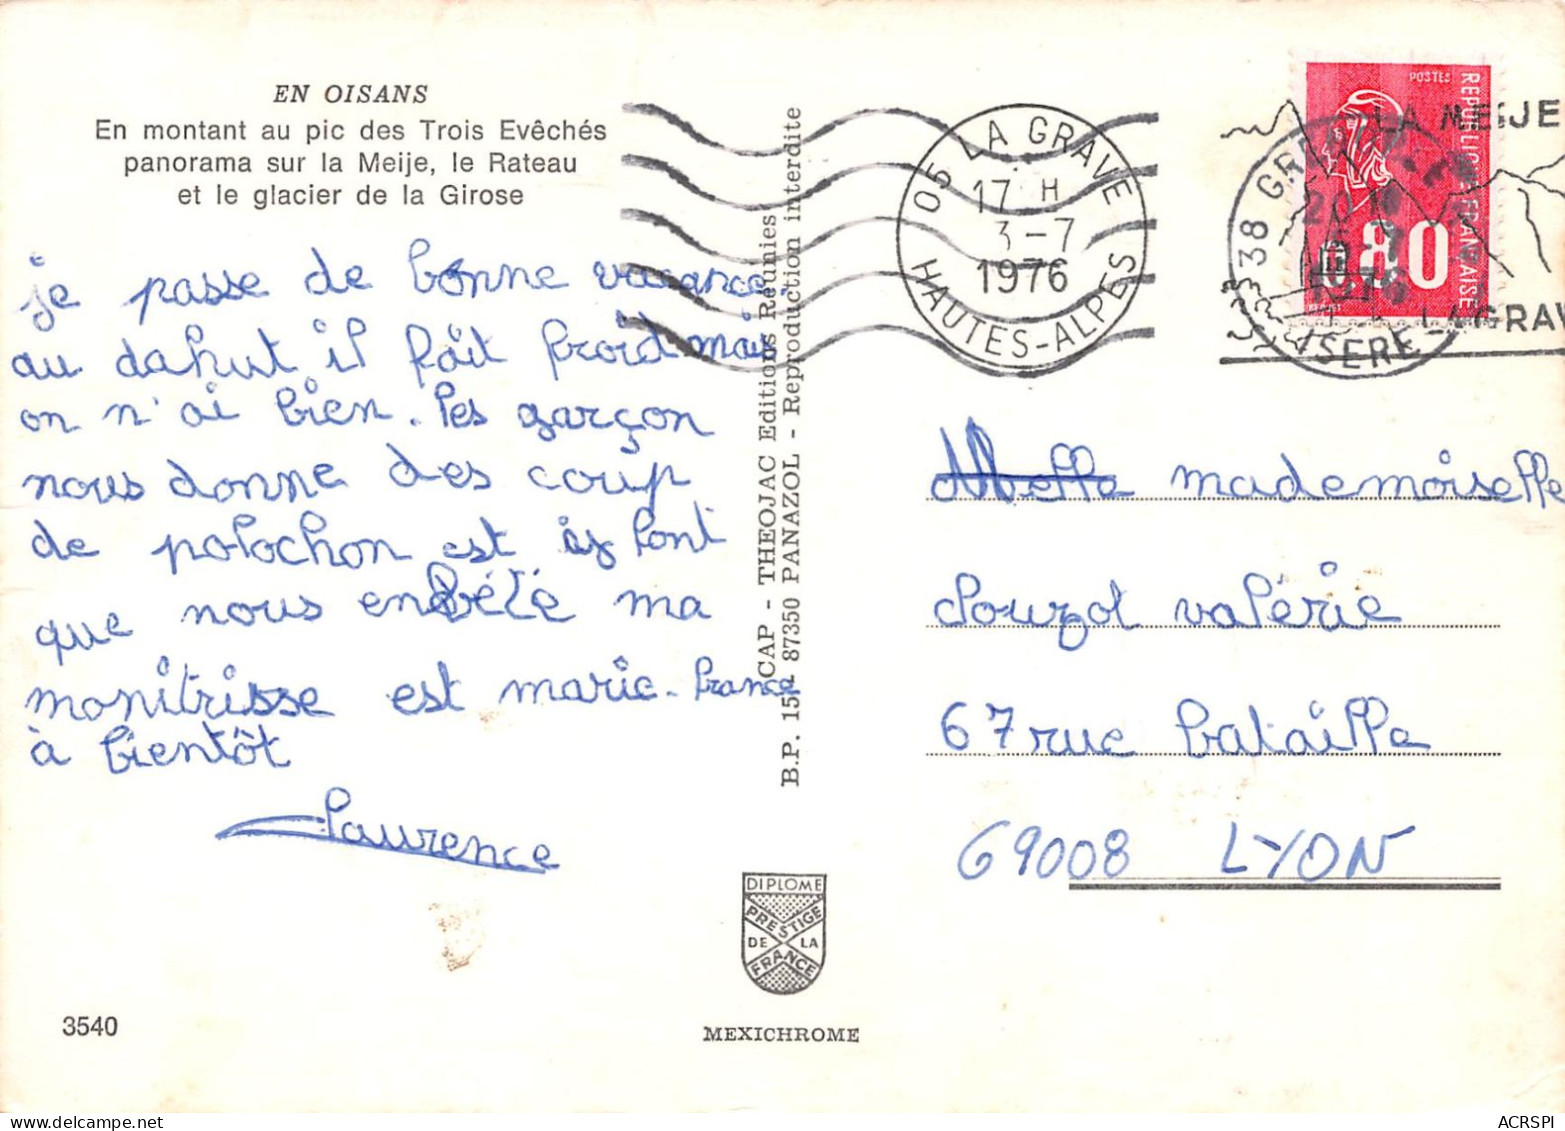 EN OISANS
En montant au pic des Trois Evêchés
panorama sur la Meije, le Rateau
et le glacier de la Girose
je passe de bonne vacance.
au dahut il fait froid mais
on n'ai bien. les garçon
nous donne des coup
de polochon est is font
que nous enbété ma
monitrisse est marie-france
à bientôt
Laurence
3540
CAP - THEOJAC Editions Réunies
B.P. 15 - 87350 PANAZOL - Reproduction interdite
DIPLOME
PRESTIGE
DE LA
FRANCE
MEXICHROME
05 LA GRAVE
17 H
3-7
1976
HAUTES-ALPES
POSTES
REPUBLIQUE FRANÇAISE
0,80
LA MEIJE
LA GRAV
38
ISERE
mademoiselle
Souzot valérie
67 rue bataille
69008 LYON
ACRSPI